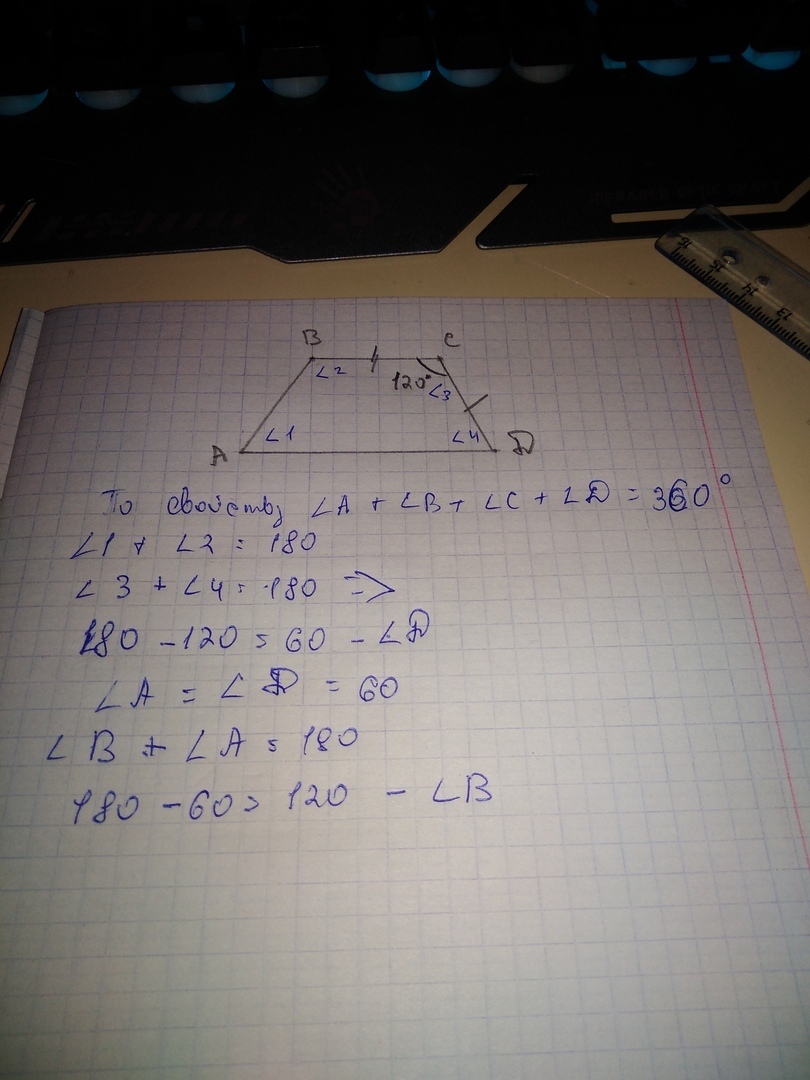 16 15 14 13
B C
∠2 120° ∠3
A ∠1 ∠4 D
По свойству ∠A + ∠B + ∠C + ∠D = 360°
∠1 + ∠2 = 180
∠3 + ∠4 = 180 =>
180 - 120 = 60 - ∠D
∠A = ∠D = 60
∠B + ∠A = 180
180 - 60 = 120 - ∠B